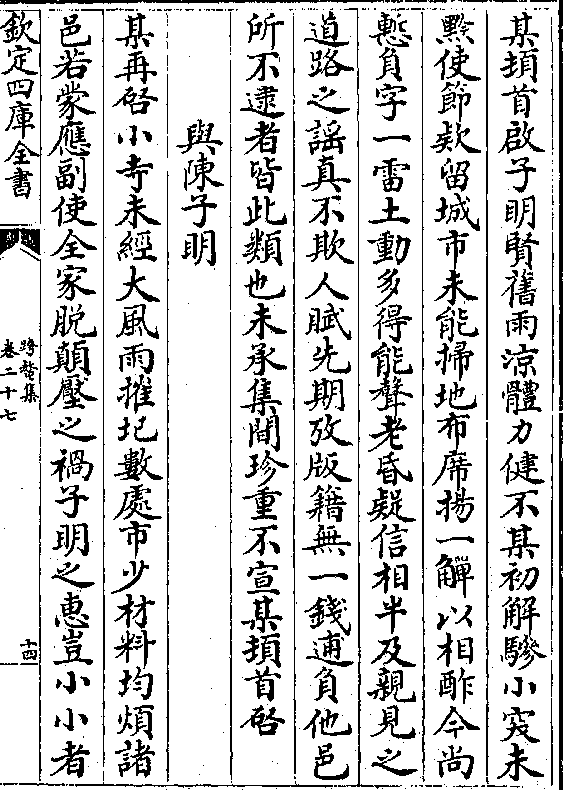 某頓首啟子明賢舊雨涼體力健不某初解驂小穾未
黔使節欵留城市未能掃地布席揚一觶以相酢今尚
慙負字一雷土動多得能聲老昏疑信相半及親見之
道路之謡真不欺人賦先期攷版籍無一錢逋負他邑
所不逮者皆此類也未承集間珍重不宣某頓首啓
與陳子明
某再啓小寺未經大風雨摧圮數處市少材料均煩諸
邑若蒙應副使全家脱顛壓之禍子明之惠豈小小者
欽定四庫全書
跨鼇集
卷二十七
十四